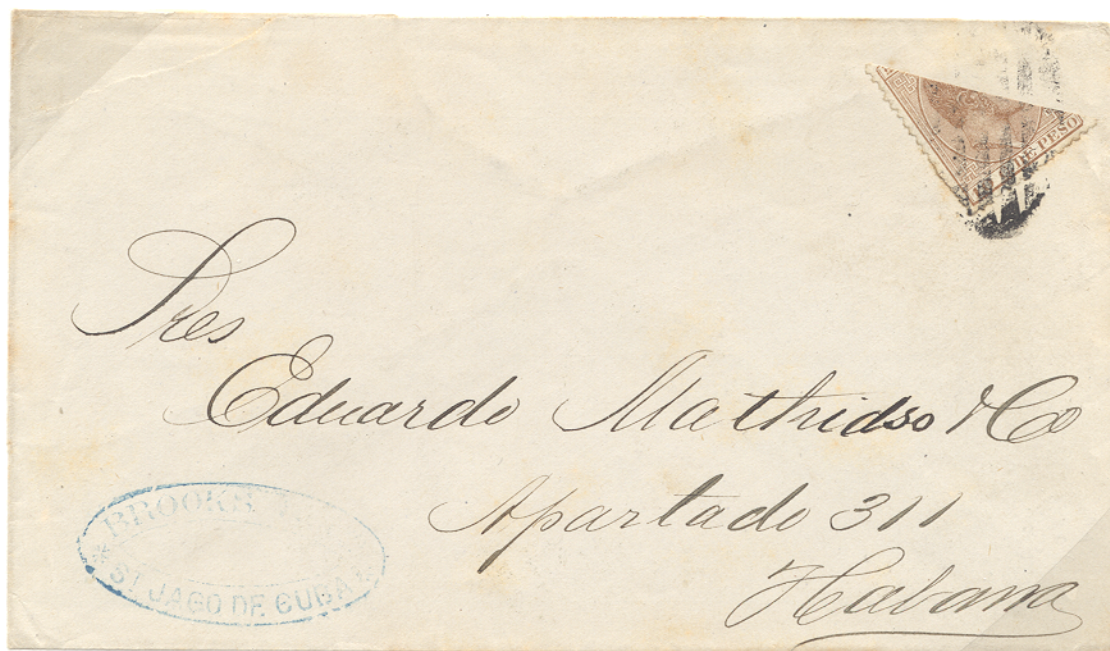 DE PESO
Sres
Eduardo Mathidso & Co
Apartado 311
Habana
BROOKS
ST JAGO DE CUBA